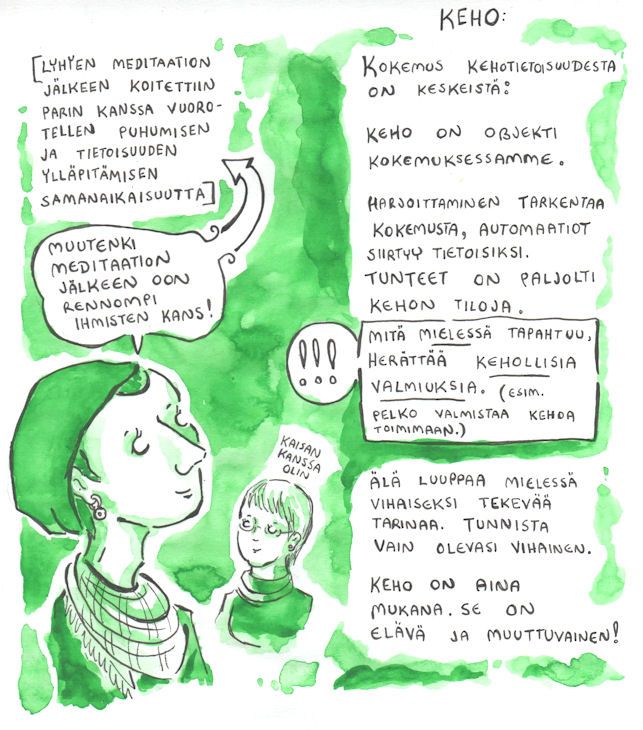 [LYHYEN MEDITAATION
JÄLKEEN KOITETTIIN
PARIN KANSSA VUORO-
TELLEN PUHUMISEN
JA TIETOISUUDEN
YLLÄPITÄMISEN
SAMANAIKAISUUTTA]
MUUTENKI
MEDITAATION
JÄLKEEN OON
RENNOMPI
IHMISTEN KANS!
KAISAN
KANSSA
OLIN
KEHO:
KOKEMUS KEHOTIETOISUUDESTA
ON KESKEISTÄ:
KEHO ON OBJEKTI
KOKEMUKSESSAMME.
HARJOITTAMINEN TARKENTAA
KOKEMUSTA, AUTOMAATIOT
SIIRTYY TIETOISIKSI.
TUNTEET ON PALJOLTI
KEHON TILOJA.
!!!
MITÄ MIELESSÄ TAPAHTUU,
HERÄTTÄÄ KEHOLLISIA
VALMIUKSIA. (ESIM.
PELKO VALMISTAA KEHOA
TOIMIMAAN.)
ÄLÄ LUUPPAA MIELESSÄ
VIHAISEKSI TEKEVÄÄ
TARINAA. TUNNISTA
VAIN OLEVASI VIHAINEN.
KEHO ON AINA
MUKANA. SE ON
ELÄVÄ JA MUUTTUVAINEN!